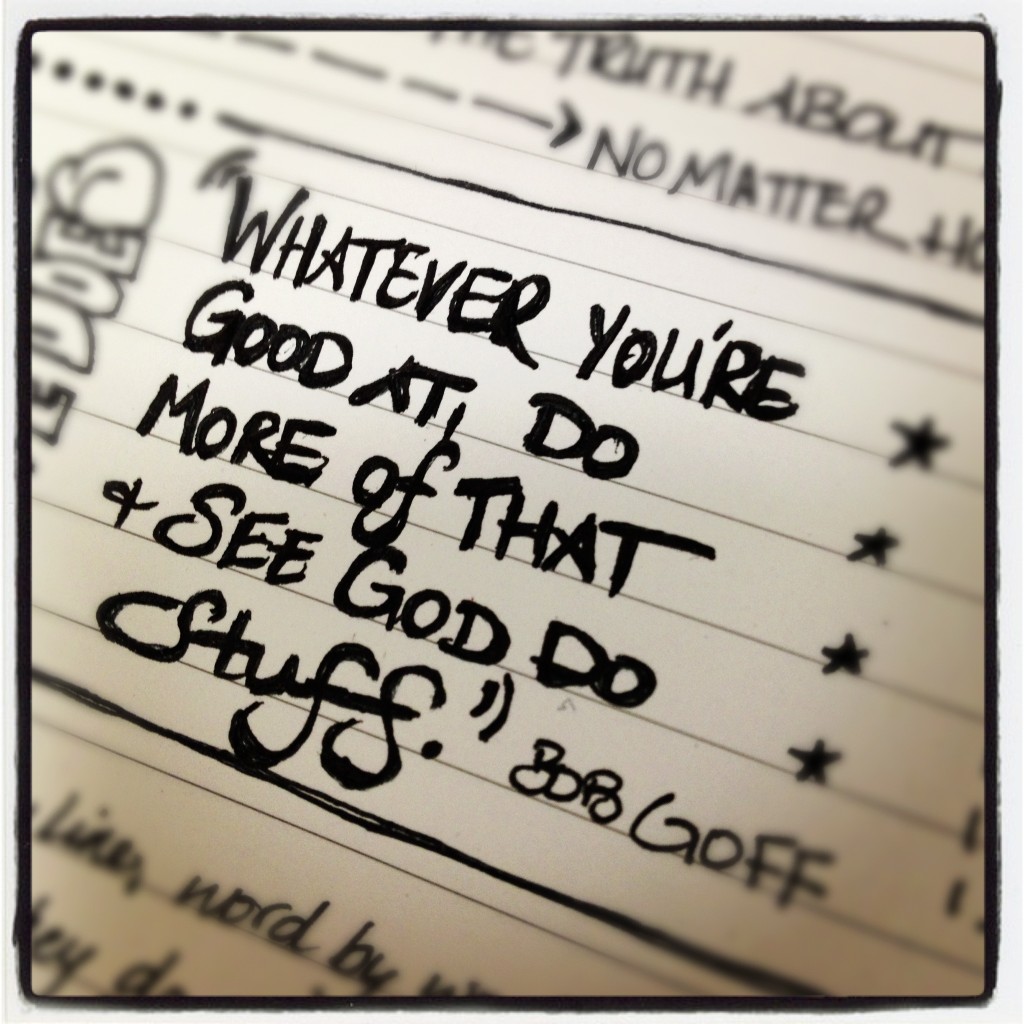 THE TRUTH ABOUT
NO MATTER
"WHATEVER YOU'RE
GOOD AT, DO
MORE of THAT
+ SEE GOD DO
Stuff."
BOB GOFF
Line, word by